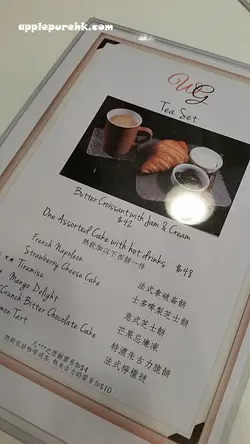 applepurehk.com
WG
Tea Set
Butter Croissant with Jam & Cream
$42
One Assorted Cake with hot drinks $48
熱飲加以下西餅一件
French Napoleon 法式拿破崙餅
Strawberry Cheese Cake 士多啤梨芝士餅
Tiramisu 意式芝士餅
Mango Delight 芒果忌廉凍
Crunch Bitter Chocolate Cake 特濃朱古力脆餅
mon Tart 法式檸檬撻